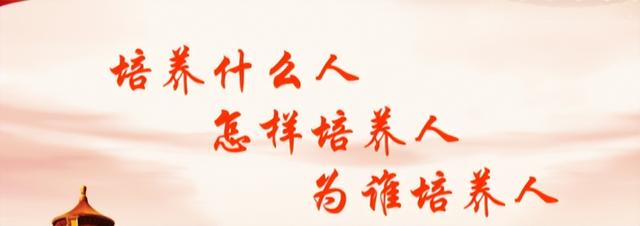 培养什么人
怎样培养人
为谁培养人